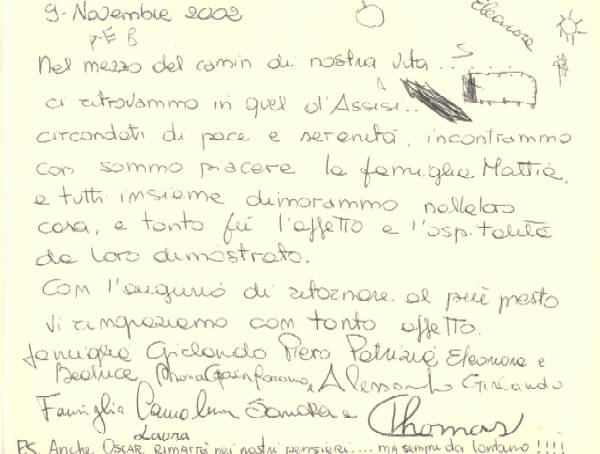 9. Novembre 2002
Eleonora
P E B
Nel mezzo del camin di nostra vita.......
ci ritrovammo in quel d'Assisi..
circondati di pace e serenità, incontrammo
con sommo piacere la famiglia Mattia,
e tutti insieme dimorammo nella loro
casa, e tanto fu l'affetto e l'ospitalità
da loro dimostrato.
Con l'augurio di ritornare al più presto
vi ringraziamo con tanto affetto.
famiglia Girlando Piero Patrizia Eleonora e
Beatrice Alessandro Girlando
Famiglia Sandra e Thomas
Laura
P.S. Anche OSCAR RIMARRÀ nei nostri pensieri.... ma sempre da lontano!!!!